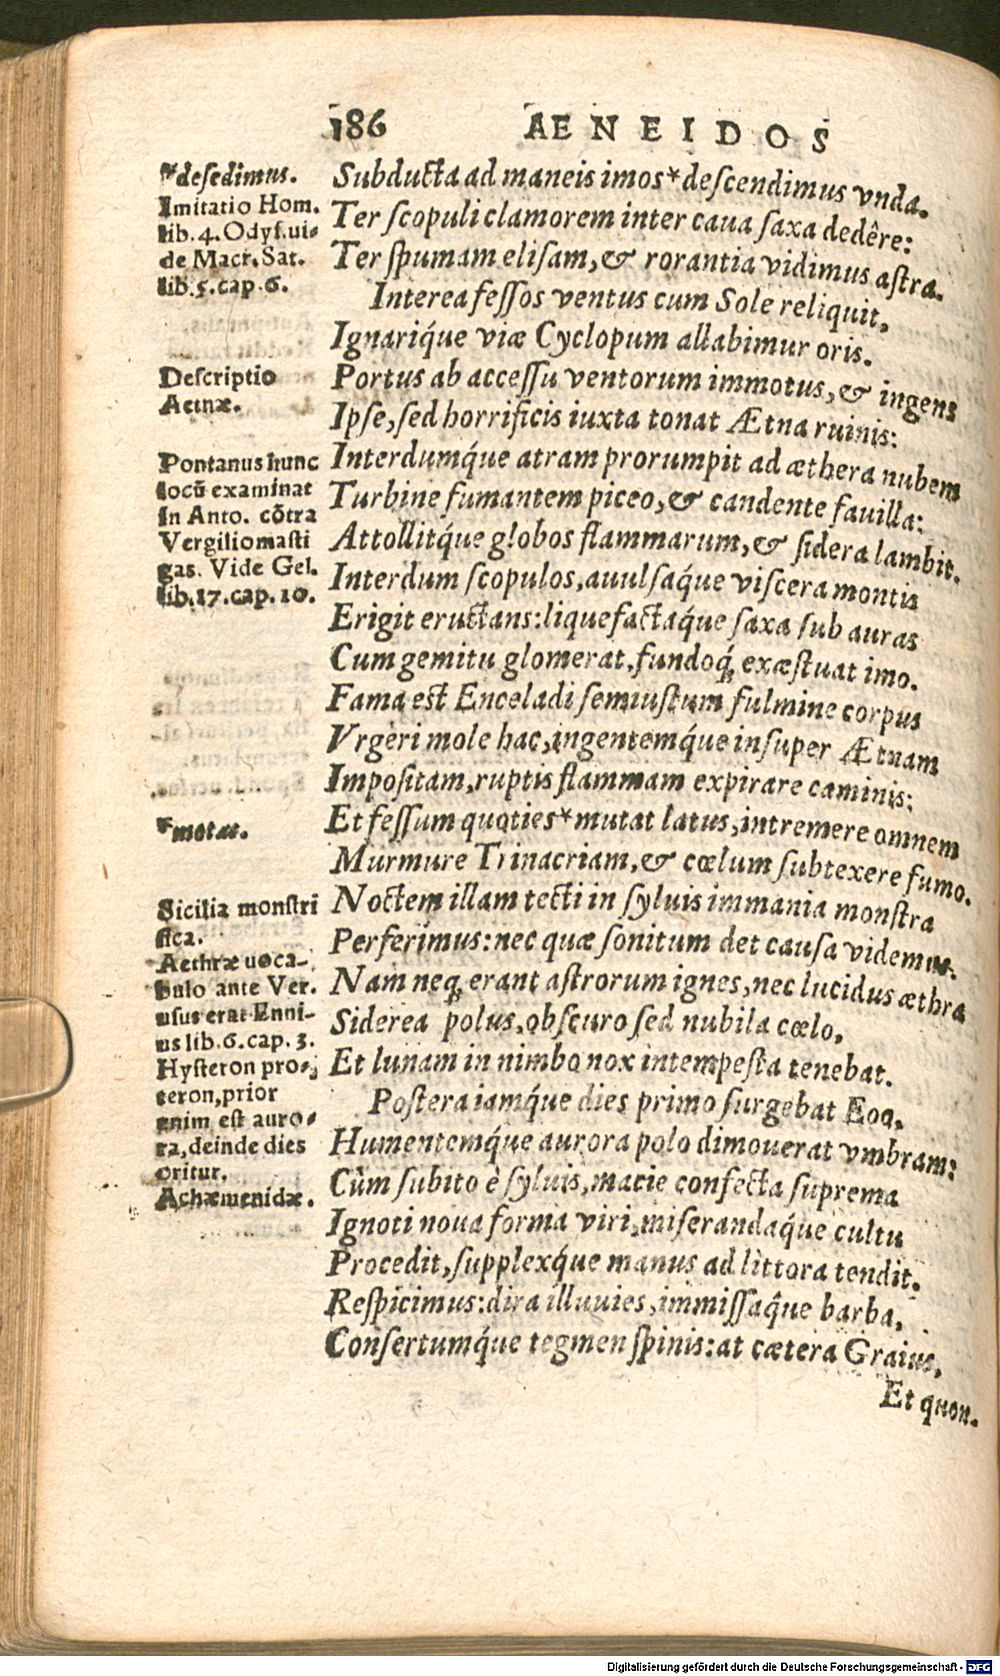 186 AENEIDOS
*desedimus.
Imitatio Hom.
lib. 4. Odyſ. ui-
de Macr. Sat.
lib. 5. cap. 6.
Deſcriptio
Aetnæ.
Pontanus hunc
locū examinat
in Anto. cõtra
Vergiliomaſti
gas. Vide Gel.
lib. 17. cap. 10.
*motat.
Sicilia monſtri
fica.
Aethræ uoca-
bulo ante Ver.
usus erat Enni-
us lib. 6. cap. 3.
Hyſteron pro-
teron, prior
enim eſt auro-
ra, deinde dies
oritur.
Achæmenidæ.
Subducta ad maneis imos *deſcendimus vnda.
Ter ſcopuli clamorem inter caua ſaxa dedêre:
Ter ſpumam eliſam, & rorantia vidimus aſtra.
Interea feſſos ventus cum Sole reliquit,
Ignariq́ue viæ Cyclopum allabimur oris.
Portus ab acceſſu ventorum immotus, & ingens
Ipſe, ſed horrificis iuxta tonat Ætna ruinis:
Interdumq́ue atram prorumpit ad æthera nubem
Turbine fumantem piceo, & candente fauilla:
Attollitq́ue globos flammarum, & ſidera lambit.
Interdum ſcopulos, auulſaq́ue viſcera montis
Erigit eructans: liquefactaq́ue ſaxa ſub auras
Cum gemitu glomerat, fundoq́; exæſtuat imo.
Fama eſt Enceladi ſemiuſtum fulmine corpus
Vrgeri mole hac, ingentemq́ue inſuper Ætnam
Impoſitam, ruptis flammam expirare caminis:
Et feſſum quoties *mutat latus, intremere omnem
Murmure Trinacriam, & cœlum ſubtexere fumo.
Noctem illam tecti in ſyluis immania monſtra
Perferimus: nec quæ ſonitum det cauſa videmus.
Nam neq; erant aſtrorum ignes, nec lucidus æthra
Siderea polus, obſcuro ſed nubila cœlo,
Et lunam in nimbo nox intempeſta tenebat.
Poſtera iamq́ue dies primo ſurgebat Eoo,
Humentemq́ue aurora polo dimouerat vmbram:
Cùm ſubito è ſyluis, macie confecta ſuprema
Ignoti noua forma viri, miſerandaq́ue cultu
Procedit, ſupplexq́ue manus ad littora tendit.
Reſpicimus: dira illuuies, immiſſaq́ue barba,
Conſertumq́ue tegmen ſpinis: at cætera Graius,
Et quon.
Digitalisierung gefördert durch die Deutsche Forschungsgemeinschaft - DFG